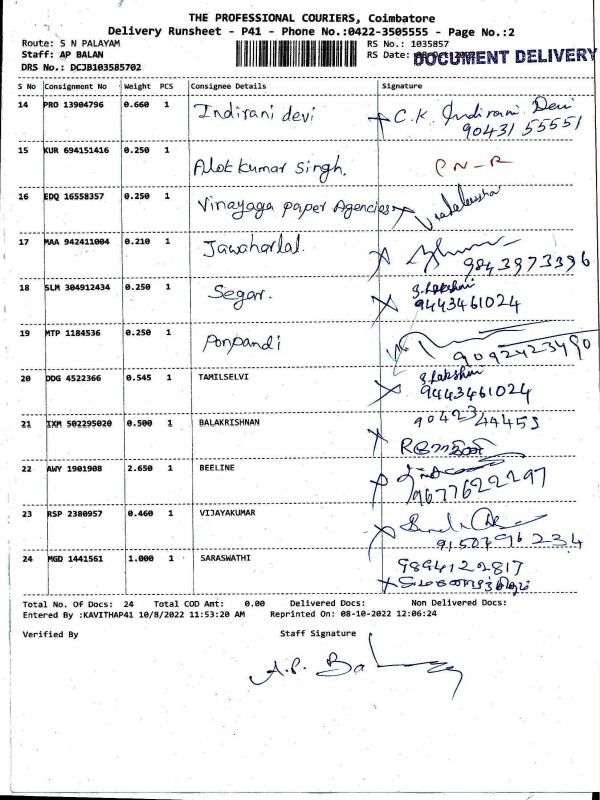 THE PROFESSIONAL COURIERS, Coimbatore
Delivery Runsheet - P41 - Phone No.:0422-3505555 - Page No.:2
Route: S N PALAYAM
RS No.: 1035857
Staff: AP BALAN
RS Date:
DOCUMENT DELIVERY
DRS No.: DCJB103585702
S No Consignment No Weight PCS Consignee Details Signature
14 PRO 13904796 0.660 1 Indirani devi C.K. Indirani Devi
90431 55551
15 KUR 694151416 0.250 1 Alok kumar Singh.
16 EDQ 16558357 0.250 1 Vinayaga paper Agencies
17 MAA 942411004 0.210 1 Jawaharlal.
9843973396
18 SLM 304912434 0.250 1 Segar. S.Lakshmi
9443461024
19 MTP 1184536 0.250 1 Ponpandi
9092423490
20 DDG 4522366 0.545 1 TAMILSELVI S.Lakshmi
9443461024
21 IXM 502295020 0.500 1 BALAKRISHNAN
22 AWY 1901908 2.650 1 BEELINE
9677622297
23 RSP 2380957 0.460 1 VIJAYAKUMAR
24 MGD 1441561 1.000 1 SARASWATHI 9894122817
Total No. Of Docs: 24 Total COD Amt: 0.00 Delivered Docs: Non Delivered Docs:
Entered By :KAVITHAP41 10/8/2022 11:53:20 AM Reprinted On: 08-10-2022 12:06:24
Verified By Staff Signature
A.P. Bal